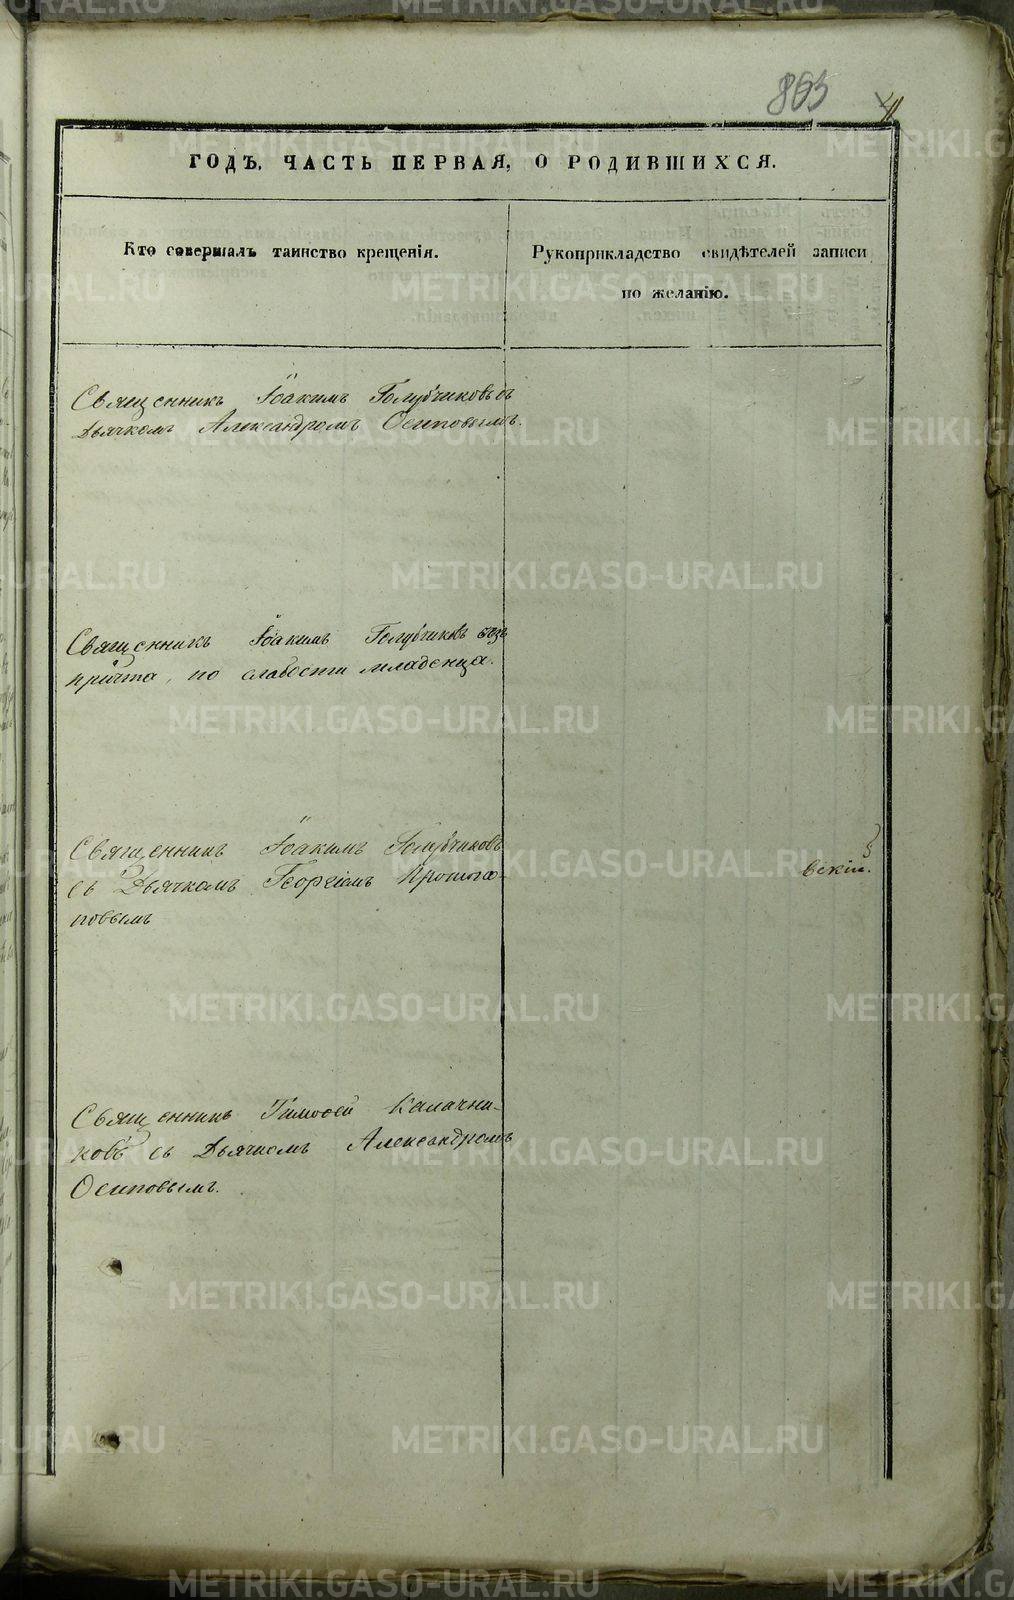 METRIKI.GASO-URAL.RU
863
ГОДЪ, ЧАСТЬ ПЕРВАЯ, О РОДИВШИХСЯ.
Кто совершалъ таинство крещенія.
Рукоприкладство свидѣтелей записи
по желанію.
Священникъ Іоакимъ Голубчиковъ съ
Дьячкомъ Александромъ Осиповымъ.
Священникъ Іоакимъ Голубчиковъ безъ
причта, по слабости младенца.
Священникъ Іоакимъ Голубчиковъ
съ Дьячкомъ Георгіемъ Протопо-
повымъ
вскій.
Священникъ Тимоѳей Калачни-
ковъ съ Дьячкомъ Александромъ
Осиповымъ.